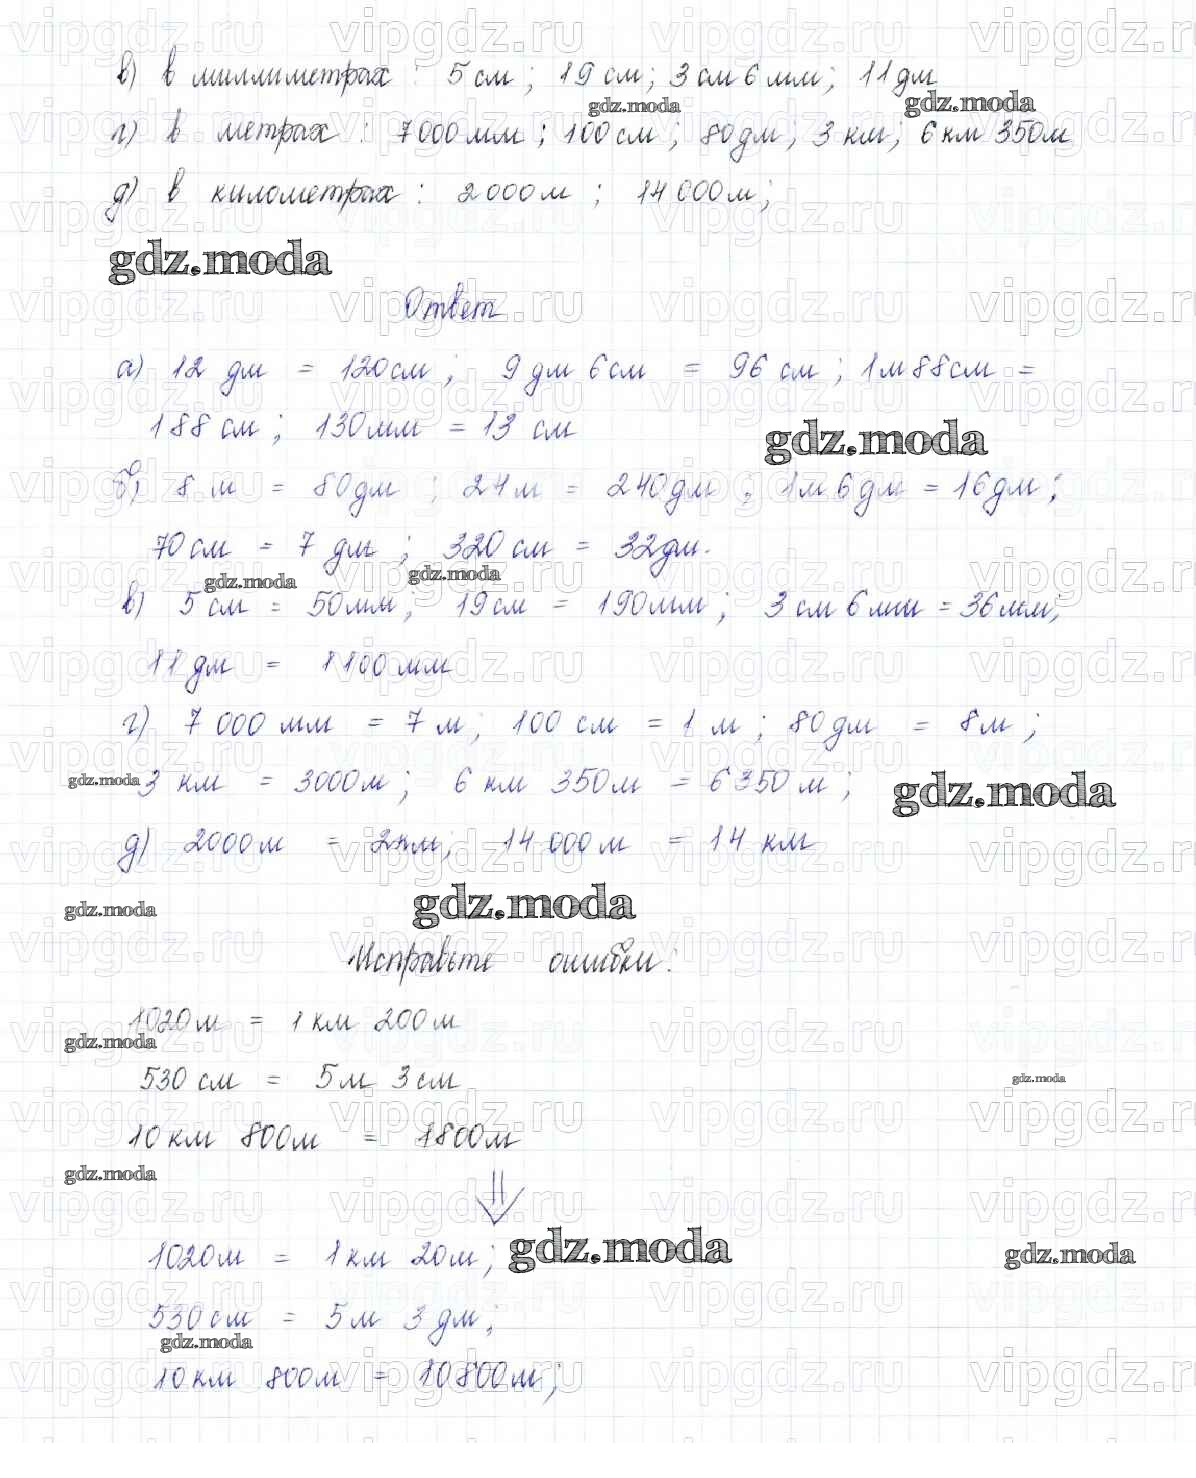 в) в миллиметрах : 5 см ; 19 см ; 3 см 6 мм ; 11 дм
г) в метрах : 7 000 мм ; 100 см ; 80 дм ; 3 км ; 6 км 350 м
д) в километрах : 2 000 м ; 14 000 м ;
gdz.moda
Ответ
а) 12 дм = 120 см ; 9 дм 6 см = 96 см ; 1 м 88 см =
188 см ; 130 мм = 13 см
gdz.moda
б) 8 м = 80 дм ; 24 м = 240 дм ; 1 м 6 дм = 16 дм ;
70 см = 7 дм ; 320 см = 32 дм.
gdz.moda gdz.moda
в) 5 см = 50 мм ; 19 см = 190 мм ; 3 см 6 мм = 36 мм ;
11 дм = 1100 мм
г) 7 000 мм = 7 м ; 100 см = 1 м ; 80 дм = 8 м ;
3 км = 3000 м ; 6 км 350 м = 6350 м ;
gdz.moda
д) 2000 м = 2 км ; 14 000 м = 14 км
gdz.moda
Исправьте ошибки :
1020 м = 1 км 200 м
530 см = 5 м 3 см
10 км 800 м = 1800 м
⇓
1020 м = 1 км 20 м ;
530 см = 5 м 3 дм ;
10 км 800 м = 10 800 м ;